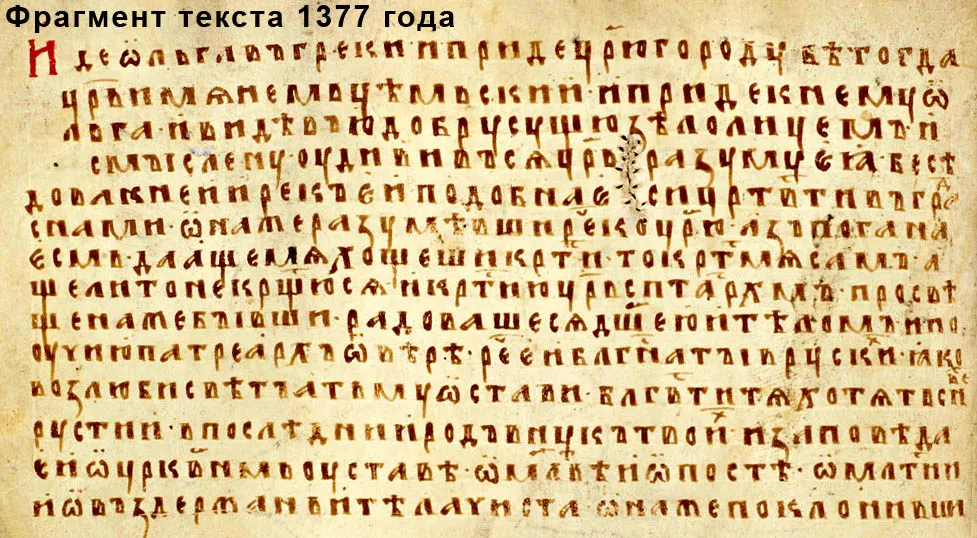 Фрагмент текста 1377 года
Иде ѡльга въ греки · и приде цр҃югороду · бѣ тогда
цр҃ь имѧнемь цѣмьскии · и приде к нему ѡ
льга · и видѣвъ ю добру сущю зѣло лицемъ · и
смыслену · оудививъсѧ цр҃ь разуму еꙗ · бесѣ
дова к неи и рекъ еи подобна еси црⷭ҇твти въ граⷣ
с нами · ѡна же разумѣвши рⷱ҇е ко цр҃ю · азъ погана
есмь · да аще мѧ хощеши крⷭ҇тити · то крⷭ҇ти мѧ самъ · а
ще ли то не крщ҃юсѧ · и крⷭ҇ти ю цр҃ь с птⷬ҇архмь · просвѣ
щена же бывши · радовашесѧ дш҃ею и тѣломъ · и по
оучи ю патреархъ ѡ вѣрѣ · рⷱ҇е еи блгⷭ҇на ты в руски · ꙗко
возлюби свѣтъ а тьму ѡстави · блгⷭ҇вти тѧ хотѧть сн҃ве
рустии · в послѣднии родъ внукъ твоиⷯ · и заповѣда
еи ѡ цркⷪ҇внмь оуставѣ · ѡ млт҃вѣ и ѡ постѣ · ѡ млⷭ҇тни
и ѡ въздержаньи тѣла чиста · ѡна же поклонивши